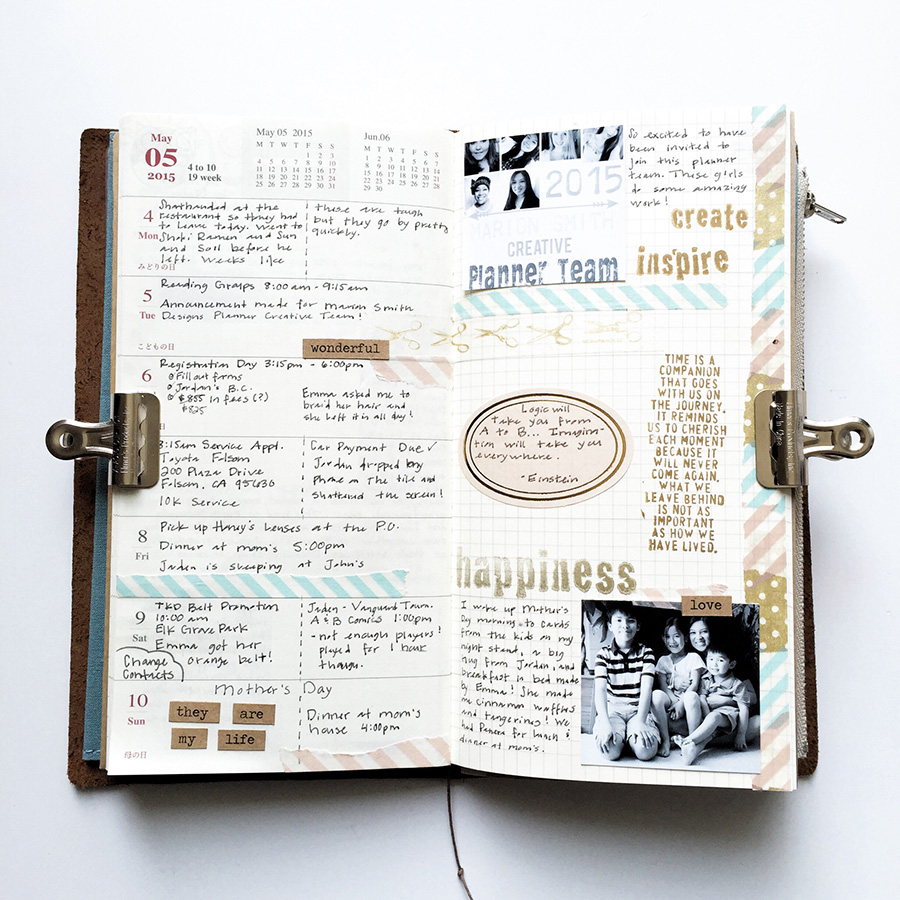 May
05
2015
4 to 10
19 week
May 05 2015
M T W T F S S
1 2 3
4 5 6 7 8 9 10
11 12 13 14 15 16 17
18 19 20 21 22 23 24
25 26 27 28 29 30 31
Jun.06
M T W T F S S
1 2 3 4 5 6 7
8 9 10 11 12 13 14
15 16 17 18 19 20 21
22 23 24 25 26 27 28
29 30
4
Mon
みどりの日
at the
restaurant so Honey had
to leave today. Went to
Shoki Ramen and Sun
and Soil before he
left. Weeks like
these are tough
but they go by pretty
quickly.
5
Tue
こどもの日
Reading Groups 8:00am - 9:15am
Announcement made for Marion Smith
Designs Planner Creative Team!
wonderful
6
Registration Day 3:15pm - 6:00pm
Fill out forms
Jordan's B.C.
$855 in fees (?)
$825
Emma asked me to
braid her hair and
she left it in all day!
:15am Service Appt.
Toyota Folsom
200 Plaza Drive
Folsom, CA 95630
10K Service
Car Payment Due ✓
Jordan dropped my
phone on the tile and
shattered the screen!
8
Fri
Pick up Honey's lenses at the P.O.
Dinner at mom's 5:00pm
Jaden is sleeping at John's
9
Sat
TKD Belt Promotion
10:00 am
Elk Grove Park
Emma got her
orange belt!
Change
Contacts
Jaden - Vanguard Tourn.
A & B Comics 1:00pm
- not enough players!
played for 1 hour
though.
10
Sun
母の日
Mother's Day
they are
my life
Dinner at mom's
house 4:00pm
2015
MARION SMITH
CREATIVE
Planner Team
So excited to have
been invited to
join this planner
team. These girls
do some amazing
work!
create
inspire
Logic will
take you from
A to B... Imagina-
tion will take you
everywhere.
- Einstein
TIME IS A
COMPANION
THAT GOES
WITH US ON
THE JOURNEY.
IT REMINDS
US TO CHERISH
EACH MOMENT
BECAUSE IT
WILL NEVER
COME AGAIN.
WHAT WE
LEAVE BEHIND
IS NOT AS
IMPORTANT
AS HOW WE
HAVE LIVED.
happiness
love
I woke up Mother's
Day morning to cards
from the kids on my
night stand, a big
hug from Jordan, and
breakfast in bed made
by Emma! She made
me cinnamon waffles
and tangerine! We
had Panera for lunch &
dinner at mom's.